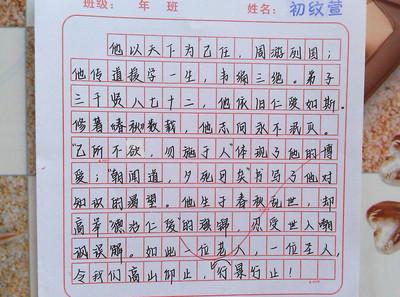 班级： 年 班 姓名：初纹萱
他以天下为己任，周游列国；
他传道授学一生，韦编三绝。弟子
三千贤人七十二，他依旧仁爱如斯。
修著《春秋》数载，他志向永不泯灭。
“己所不欲，勿施于人”体现了他的博
爱；“朝闻道，夕死可矣”书写了他对
知识的渴望。他生于春秋乱世，却
高举“德治仁爱”的旗帜，忍受世人嘲
讽误解。如此一位老人，一位圣人，
令我们高山仰止，行景行止！